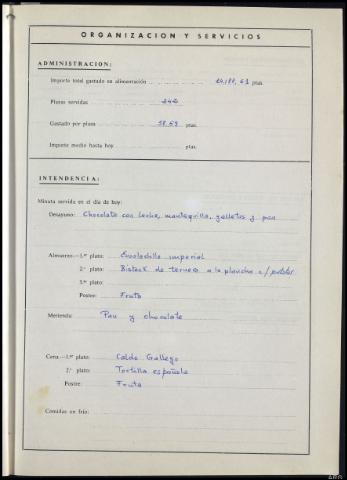 ORGANIZACION Y SERVICIOS
ADMINISTRACION:
Importe total gastado en alimentación 14,188,61 ptas.
Plazas servidas 240
Gastado por plaza 58.69 ptas.
Importe medio hasta hoy ptas.
INTENDENCIA:
Minuta servida en el día de hoy:
Desayuno: Chocolate con leche, mantequilla, galletas y pan
Almuerzo.—1.er plato: Ensaladilla imperial
2.º plato: Bisteck de ternera a la plancha c/ patatas
3.er plato:
Postre: Fruta
Merienda: Pan y chocolate
Cena.—1.er plato: Caldo Gallego
2.º plato: Tortilla española
Postre: Fruta
Comidas en frío: